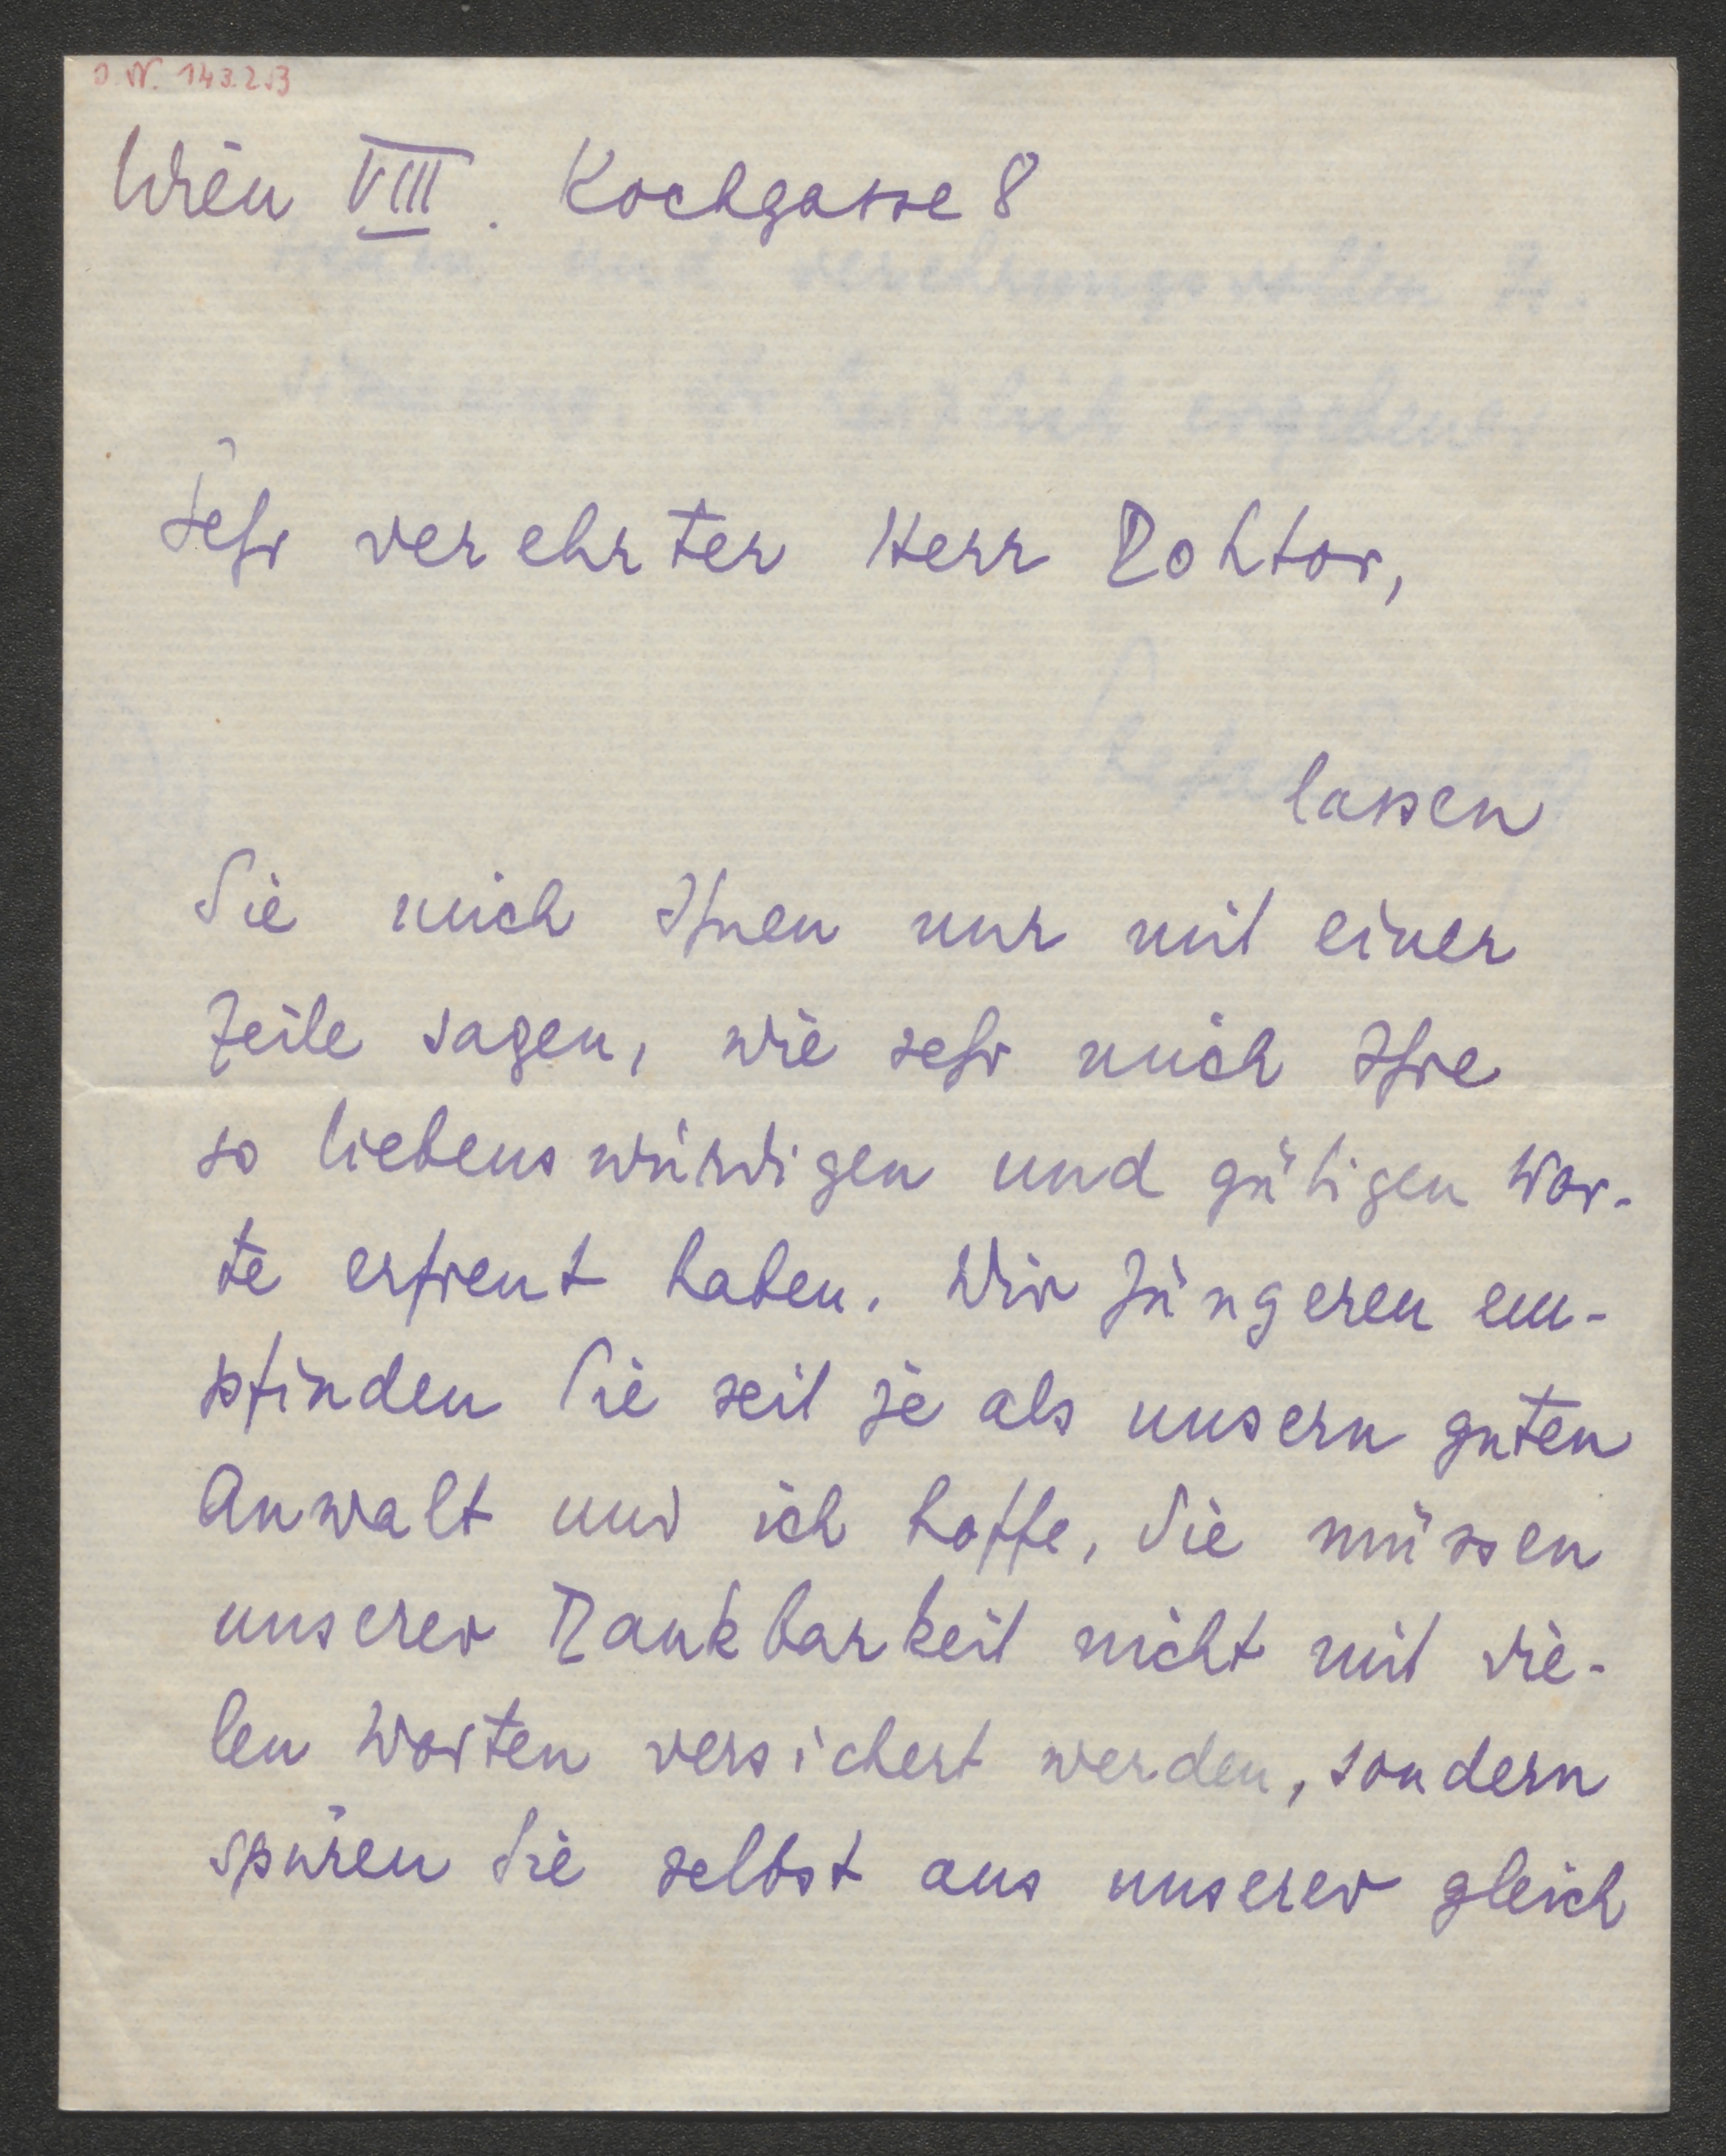 J. N. 143.253
Wien VIII. Kochgasse 8
Sehr verehrter Herr Doktor,
lassen
Sie mich Ihnen nur mit einer
Zeile sagen, wie sehr mich Ihre
so liebenswürdigen und gütigen Wor-
te erfreut haben. Wir Jüngeren em-
pfinden Sie seit je als unsern guten
Anwalt und ich hoffe, Sie müssen
unserer Dankbarkeit nicht mit vie-
len Worten versichert werden, sondern
spüren Sie selbst aus unserer gleich